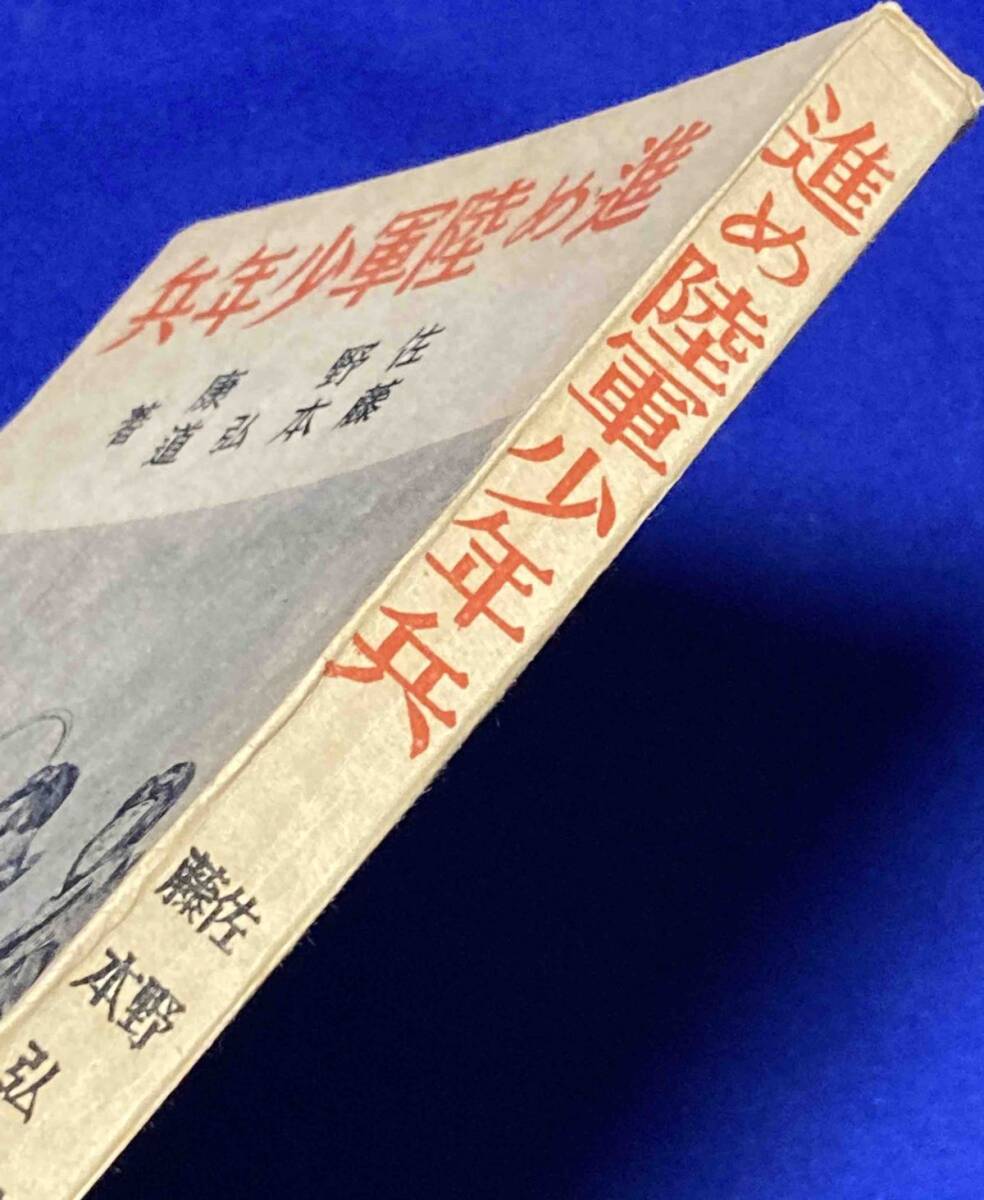 進め陸軍少年兵
佐野康
藤本弘道 著
進め陸軍少年兵
佐野
藤本弘